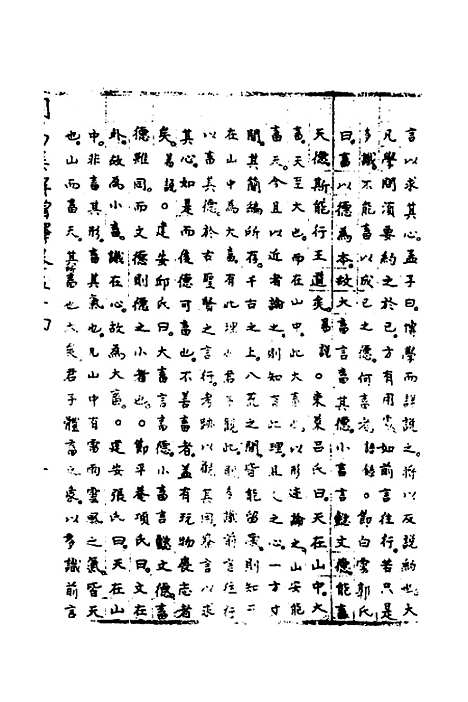 言以求其心孟子曰博學而詳說之將以反說約也大
凡學問須要約之於己方有用處如前言往行若只是
多識不能畜以成己之德何畜者語錄○節白雲郭氏
曰畜以德為本故大畜言畜其德小畜言懿文德能畜
天德斯能行王道矣易說○東萊呂氏曰天在山中大
畜天至大也而在山中此大畜也以形迹論之山安能
畜天今且以近者論之則知有此理且人之心一方寸
間其簡編所存千古之上八荒之間皆能留藏則知天
在山中為大畜有此理君子觀此則多識前言往行
以畜其德於古聖賢之言行考跡以觀其用察言以求
其心如是而後德可畜也不善畜者蓋有玩物喪志者
矣易說○建安邱氏曰大畜言畜德小畜言懿文德畜
德雖同而文德則德之小者也○節平菴項氏曰文在
外故為小畜識在心故為大畜○建安張氏曰天在山
中非畜其形畜其氣也凡山中有雷雨雲風之氣皆天
也山而畜天其所畜也大矣君子體畜之象以多識前言